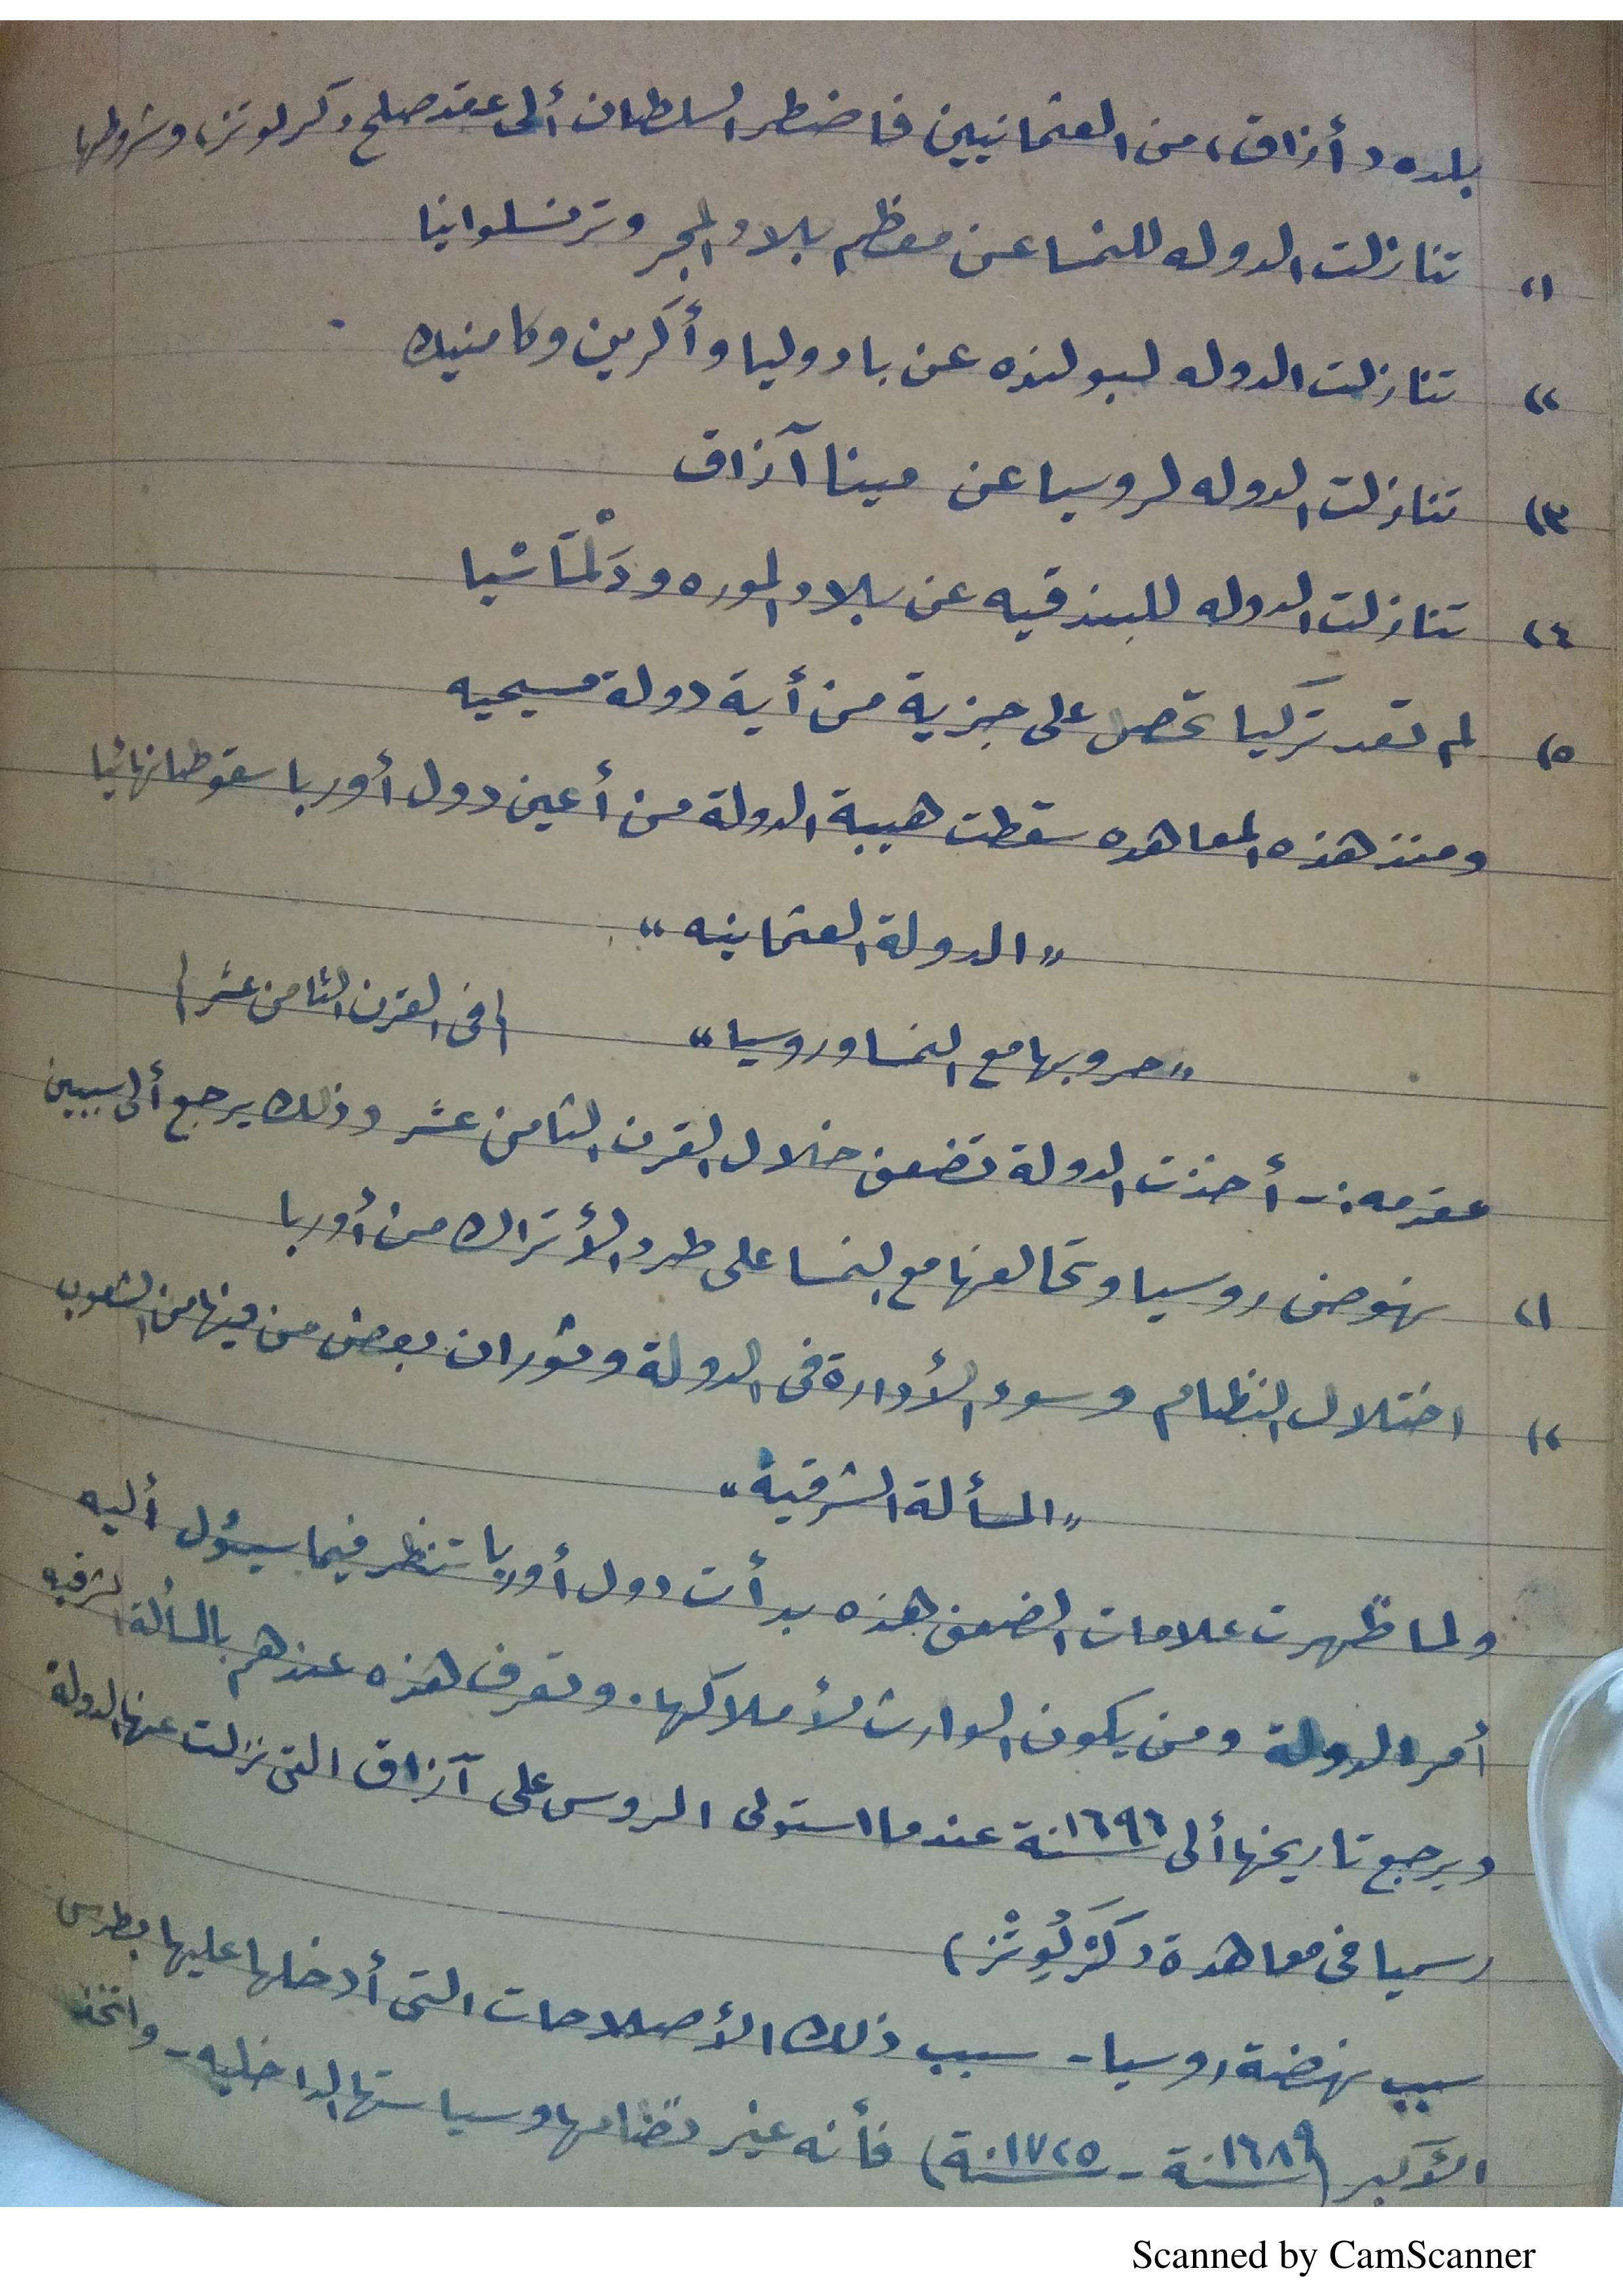 بلده «أزاق» من العثمانيين فاضطر السلطان ألى عقد صلح «كرلوتز» وشروطها
(١ تنازلت الدوله للنمسا عن معظم بلاد المجر وترنسلوانيا
(٢ تنازلت الدوله لبولنده عن بادوليا وأكرين وكامنيك
(٣ تنازلت الدوله لروسيا عن مينا آزاق
(٤ تنازلت الدوله للبندقيه عن بلاد الموره ودَلْمَاشيا
(٥ لم تعد تركيا تحصل على جزية من أية دولة مسيحيه
ومنذ هذه المعاهده سقطت هيبة الدولة من أعين دول أوربا سقوطا نهائيا
"الدولة العثمانيه"
"حروبها مع النمسا وروسيا" (فى القرن الثامن عشر)
مقدمه :- أخذت الدولة تضعف خلال القرن الثامن عشر وذلك يرجع ألى سببين
(١ نهوض روسيا وتحالفها مع النمسا على طرد الأتراك من أوربا
(٢ اختلال النظام وسوء الأدارة فى الدولة وثوران بعض من فيها من الشعوب
"المسألة الشرقية"
ولما ظهرت علامات الضعف هذه بدأت دول أوربا تنظر فيما سيئول أليه
أمر الدولة ومن يكون الوارث لأملاكها. وتعرف هذه عندهم بالمسألة الشرقيه
ويرجع تاريخها ألى سنة ١٦٩٦ عندما استولى الروس على آزاق التى نزلت عنها الدولة
رسميا فى معاهدة (كَرْلُوِتْز)
سبب نهضة روسيا - سبب ذلك الأصلاحات التى أدخلها عليها بطرس
الأكبر (سنة ١٦٨٩ - سنة ١٧٢٥) فأنه غير نظامها وسياستها الداخليه - واتخذ
Scanned by CamScanner